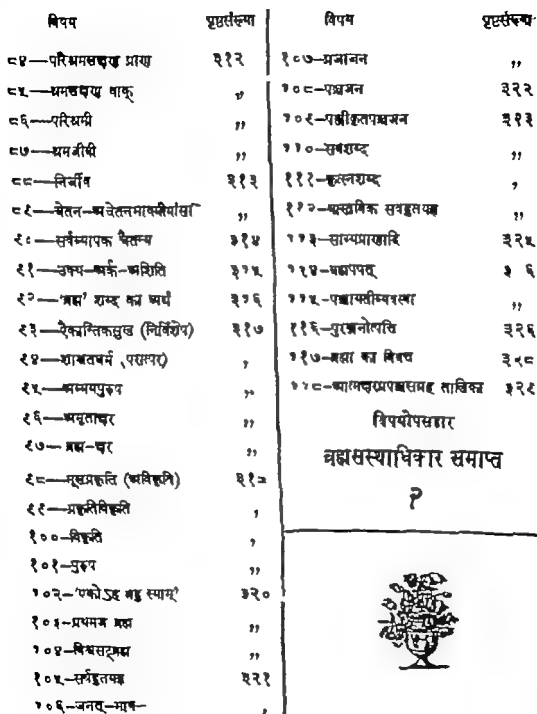 विषय पृष्ठसंख्या
८४—परिश्रमलक्षण प्राण ३१२
८५—श्रमलक्षण वाक् ,,
८६—परिश्रमी ,,
८७—श्रमजीवी ,,
८८—निर्जीव ३१३
८९—चेतन-अचेतनभावमीमांसा ,,
९०—सर्वव्यापक चैतन्य ३१४
९१—उक्थ-अर्क-अशिति ३१५
९२—'ब्रह्म' शब्द का अर्थ ३१६
९३—ऐकान्तिकसुख (निर्विशेष) ३१७
९४—शाश्वतधर्म (परात्पर) ,
९५—अव्ययपुरुष ,,
९६—अमृताक्षर ,,
९७—ब्रह्म-क्षर ,,
९८—मूलप्रकृति (अविकृति)
९९—प्रकृतिविकृति ,
१००-विकृति ,
१०१-पुरुष ,,
१०२-'एकोऽह बहु स्याम्' ३२०
१०३-प्रथमज ब्रह्म ,,
१०४-विश्वसट्ब्रह्म ,,
१०५-सर्वहुतयज्ञ ३२१
१०६-जनत्-भाव-
विषय पृष्ठसंख्या
१०७-प्रजाजन ,,
१०८-पञ्चजन ३२२
१०९-पञ्चीकृतपञ्चजन ३१३
११०-सर्वशब्द ,,
१११-कृत्स्नशब्द ,
११२- सर्वहुतयज्ञ ,,
११३-साम्यप्राणादि ३२५
११४- ३ ६
११५- ,,
११६-पुरञ्जनोत्पत्ति ३२६
११७-ब्रह्मा का विवर्त्त
११८- तालिका ३२९
विषयोपसहार
ब्रह्मसत्याधिकार समाप्त
२